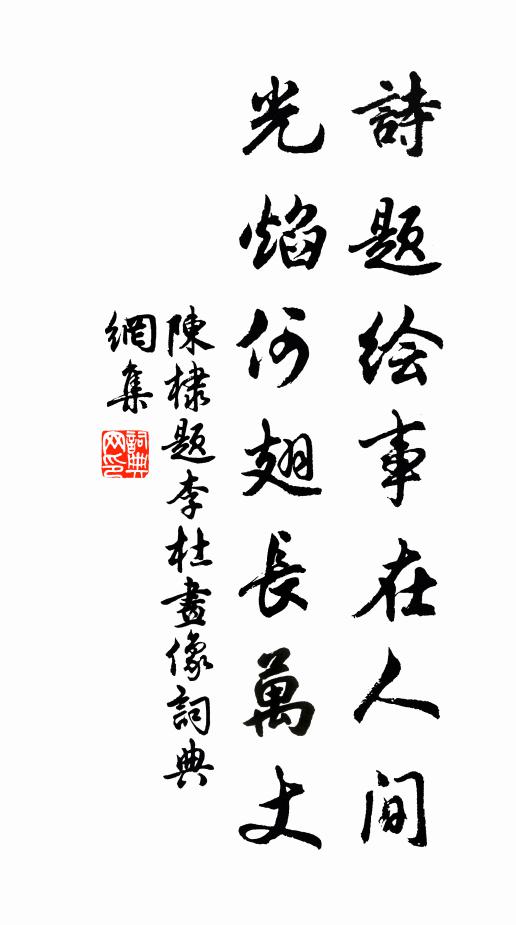 詩题绘事在人间
光焰何翅長萬丈
陳棣题李杜畫像詞典
網集
詞典網印